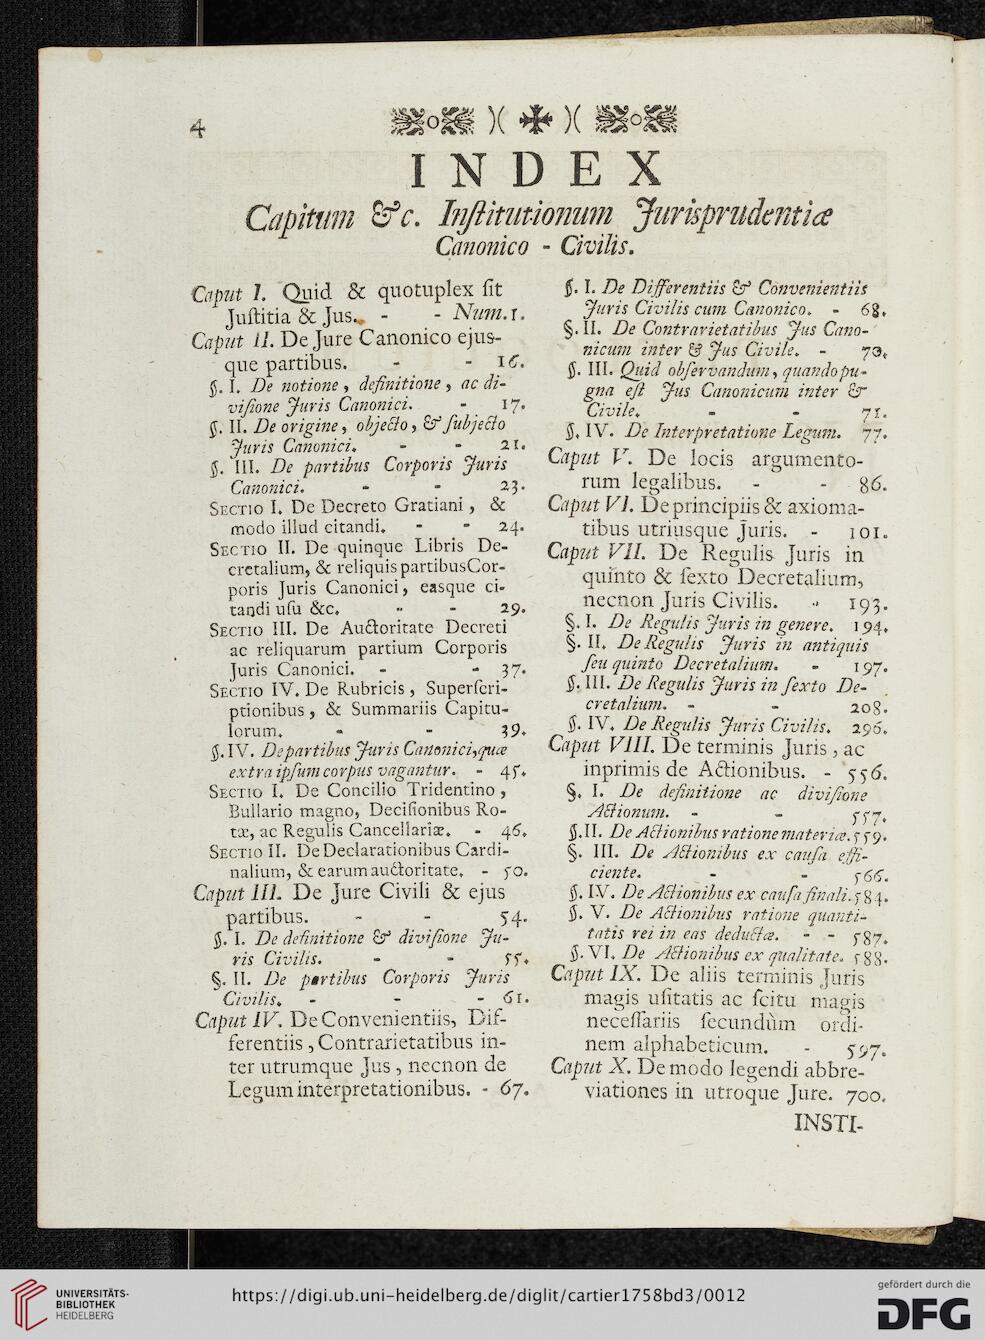 4
INDEX
Capitum &c. Inſtitutionum Jurisprudentiæ
Canonico - Civilis.
Caput I. Quid & quotuplex ſit
Juſtitia & Jus. - - Num. 1.
Caput II. De Jure Canonico ejus-
que partibus. - - 16.
§. I. De notione, definitione, ac di-
viſione Juris Canonici. - 17.
§. II. De origine, objecto, & ſubjecto
Juris Canonici. - - 21.
§. III. De partibus Corporis Juris
Canonici. - - 23.
SECTIO I. De Decreto Gratiani, &
modo illud citandi. - - 24.
SECTIO II. De quinque Libris De-
cretalium, & reliquis partibus Cor-
poris Juris Canonici, easque ci-
tandi uſu &c. - - 29.
SECTIO III. De Auctoritate Decreti
ac reliquarum partium Corporis
Juris Canonici. - - 37.
SECTIO IV. De Rubricis, Superſcri-
ptionibus, & Summariis Capitu-
lorum. - - 39.
§. IV. De partibus Juris Canonici, quæ
extra ipſum corpus vagantur. - 45.
SECTIO I. De Concilio Tridentino,
Bullario magno, Deciſionibus Ro-
tæ, ac Regulis Cancellariæ. - 46.
SECTIO II. De Declarationibus Cardi-
nalium, & earum auctoritate. - 50.
Caput III. De Jure Civili & ejus
partibus. - - 54.
§. I. De definitione & diviſione Ju-
ris Civilis. - - 55.
§. II. De partibus Corporis Juris
Civilis. - - - 61.
Caput IV. De Convenientiis, Dif-
ferentiis, Contrarietatibus in-
ter utrumque Jus, necnon de
Legum interpretationibus. - 67.
§. I. De Differentiis & Convenientiis
Juris Civilis cum Canonico. - 68.
§. II. De Contrarietatibus Jus Cano-
nicum inter & Jus Civile. - 70.
§. III. Quid obſervandum, quando pu-
gna eſt Jus Canonicum inter &
Civile. - - 71.
§. IV. De Interpretatione Legum. 77.
Caput V. De locis argumento-
rum legalibus. - - 86.
Caput VI. De principiis & axioma-
tibus utriusque Juris. - 101.
Caput VII. De Regulis Juris in
quinto & ſexto Decretalium,
necnon Juris Civilis. - 193.
§. I. De Regulis Juris in genere. 194.
§. II. De Regulis Juris in antiquis
ſeu quinto Decretalium. - 197.
§. III. De Regulis Juris in ſexto De-
cretalium. - - 208.
§. IV. De Regulis Juris Civilis. 296.
Caput VIII. De terminis Juris, ac
inprimis de Actionibus. - 556.
§. I. De definitione ac diviſione
Actionum. - - 557.
§. II. De Actionibus ratione materiæ. 559.
§. III. De Actionibus ex cauſa effi-
ciente. - - 566.
§. IV. De Actionibus ex cauſa finali. 584.
§. V. De Actionibus ratione quanti-
tatis rei in eas deductæ. - - 587.
§. VI. De Actionibus ex qualitate. 588.
Caput IX. De aliis terminis Juris
magis uſitatis ac ſcitu magis
neceſſariis ſecundùm ordi-
nem alphabeticum. - 597.
Caput X. De modo legendi abbre-
viationes in utroque Jure. 700.
INSTI-
UNIVERSITÄTS-
BIBLIOTHEK
HEIDELBERG
https://digi.ub.uni-heidelberg.de/diglit/cartier1758bd3/0012
gefördert durch die
DFG